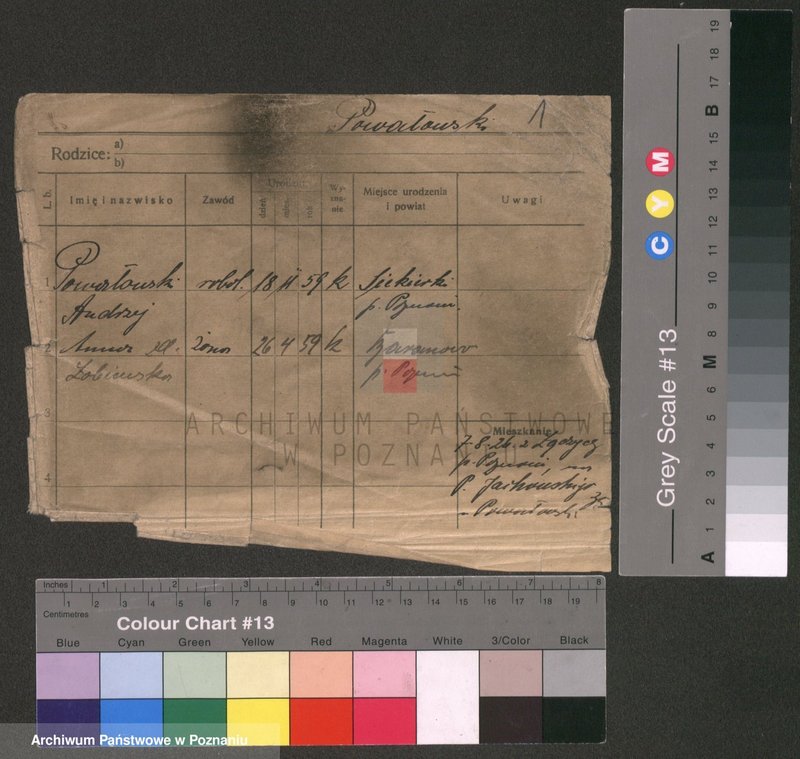 Powałowski 1
Rodzice: a)
b)
L. b. Imię i nazwisko Zawód Urodzenia dzień mies. rok Wyznanie Miejsce urodzenia i powiat Uwagi
1 Powałowski robot. 18 11 59 k Siekierki
Andrzej p. Poznań.
2 Anna żona 26 4 59 k Baranowo
p. Pozn
3
4
Mieszkanie
7.8.26. z
p. Poznań, na
P. Jackowskiego 
Powałowski
ARCHIWUM PAŃSTWOWE
W POZNANIU
Grey Scale #13
A 1 2 3 4 5 6 M 8 9 10 11 12 13 14 15 B 17 18 19
C Y M
Inches 1 2 3 4 5 6 7 8
Centimetres 1 2 3 4 5 6 7 8 9 10 11 12 13 14 15 16 17 18 19
Colour Chart #13
Blue Cyan Green Yellow Red Magenta White 3/Color Black
Archiwum Państwowe w Poznaniu